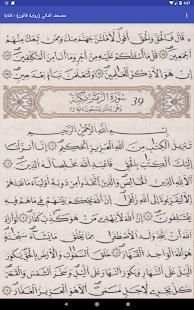 قَالَ فَالْحَقَّ وَالْحَقَّ أَقُولُ لَأَمْلَأَنَّ جَهَنَّمَ مِنكَ وَمِمَّن
تَبِعَكَ مِنْهُمْ أَجْمَعِينَ قُلْ مَا أَسْـَٔلُكُمْ عَلَيْهِ مِنْ أَجْرٍ وَمَا أَنَا مِنَ الْمُتَكَلِّفِينَ
إِنْ هُوَ إِلَّا ذِكْرٌ لِّلْعَٰلَمِينَ وَلَتَعْلَمُنَّ نَبَأَهُ بَعْدَ حِينٍ
سُورَةُ الزُّمَرِ 39
بِسْمِ اللَّهِ الرَّحْمَٰنِ الرَّحِيمِ
تَنزِيلُ الْكِتَٰبِ مِنَ اللَّهِ الْعَزِيزِ الْحَكِيمِ إِنَّا أَنزَلْنَا إِلَيْكَ
الْكِتَٰبَ بِالْحَقِّ فَاعْبُدِ اللَّهَ مُخْلِصًا لَّهُ الدِّينَ أَلَا لِلَّهِ الدِّينُ
الْخَالِصُ وَالَّذِينَ اتَّخَذُوا مِن دُونِهِ أَوْلِيَاءَ مَا نَعْبُدُهُمْ إِلَّا
لِيُقَرِّبُونَا إِلَى اللَّهِ زُلْفَىٰ إِنَّ اللَّهَ يَحْكُمُ بَيْنَهُمْ فِي مَا هُمْ فِيهِ
يَخْتَلِفُونَ إِنَّ اللَّهَ لَا يَهْدِي مَنْ هُوَ كَٰذِبٌ كَفَّارٌ لَّوْ أَرَادَ
اللَّهُ أَن يَتَّخِذَ وَلَدًا لَّاصْطَفَىٰ مِمَّا يَخْلُقُ مَا يَشَاءُ سُبْحَٰنَهُ
هُوَ اللَّهُ الْوَٰحِدُ الْقَهَّارُ خَلَقَ السَّمَٰوَٰتِ وَالْأَرْضَ بِالْحَقِّ يُكَوِّرُ
الَّيْلَ عَلَى النَّهَارِ وَيُكَوِّرُ النَّهَارَ عَلَى الَّيْلِ وَسَخَّرَ الشَّمْسَ
وَالْقَمَرَ كُلٌّ يَجْرِي لِأَجَلٍ مُّسَمًّى أَلَا هُوَ الْعَزِيزُ الْغَفَّارُ